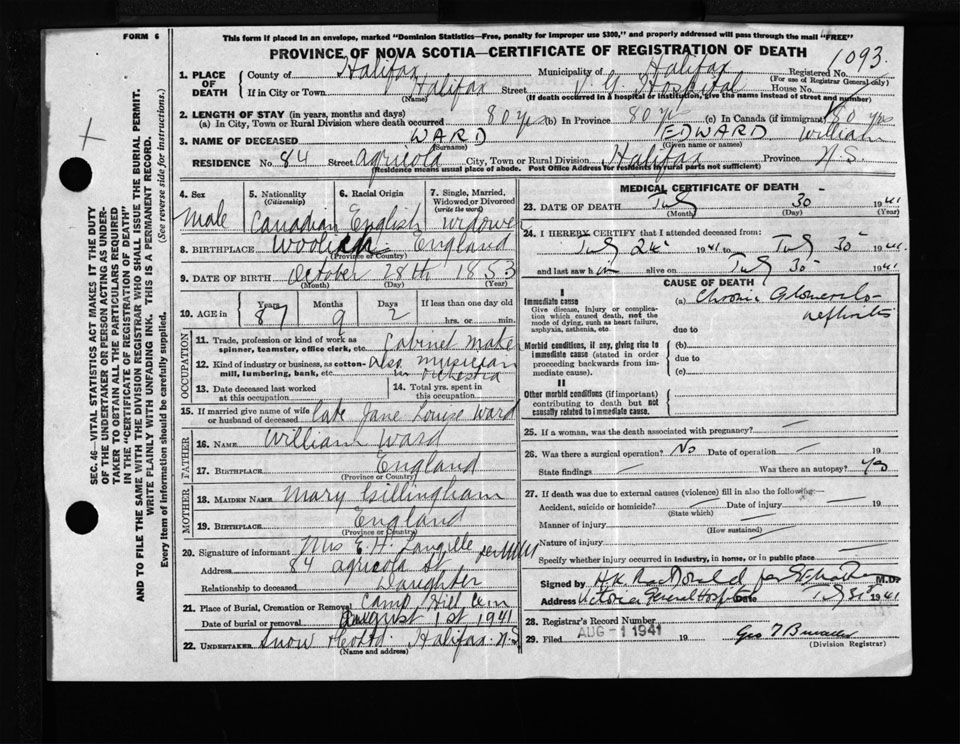 FORM 6
This form if placed in an envelope, marked "Dominion Statistics—Free, penalty for improper use $300," and properly addressed will pass through the mail "FREE"
PROVINCE OF NOVA SCOTIA—CERTIFICATE OF REGISTRATION OF DEATH
1093
1. PLACE OF DEATH
County of Halifax Municipality of Halifax Registered No.
(For use of Registrar General only)
If in City or Town Halifax Street V. G. Hospital House No.
(Name) (If death occurred in a hospital or institution, give the name instead of street and number)
2. LENGTH OF STAY (in years, months and days)
(a) In City, Town or Rural Division where death occurred 80 yrs (b) In Province 80 yrs (c) In Canada (if immigrant) 80 yrs
3. NAME OF DECEASED WARD EDWARD William
(Surname) (Given name or names)
RESIDENCE No. 84 Street Agricola City, Town or Rural Division Halifax Province N.S.
(Residence means usual place of abode. Post Office Address for Residents in rural parts not sufficient)
4. Sex Male
5. Nationality (Citizenship) Canadian
6. Racial Origin English
7. Single, Married, Widowed or Divorced (write the word) Widower
8. BIRTHPLACE England
(Province or Country)
9. DATE OF BIRTH October 28th 1853
(Month) (Day) (Year)
10. AGE in Years 87 Months 9 Days 2 If less than one day old
hrs. or min.
OCCUPATION
11. Trade, profession or kind of work as spinner, teamster, office clerk, etc. Cabinet Maker
12. Kind of industry or business, as cotton-mill, lumbering, bank, etc. also musician in orchestra
13. Date deceased last worked at this occupation
14. Total yrs. spent in this occupation
15. If married give name of wife or husband of deceased late Jane Louise Ward
FATHER
16. NAME William Ward
17. BIRTHPLACE England
(Province or Country)
MOTHER
18. MAIDEN NAME Mary Gillingham
19. BIRTHPLACE England
(Province or Country)
20. Signature of informant Mrs E. H. Langille
Address 84 Agricola St
Relationship to deceased Daughter
21. Place of Burial, Cremation or Removal Camp Hill Cem
Date of burial or removal August 1st 1941
22. UNDERTAKER Snow & Co Ltd Halifax N.S
(Name and address)
MEDICAL CERTIFICATE OF DEATH
23. DATE OF DEATH July 30 1941
(Month) (Day) (Year)
24. I HEREBY CERTIFY that I attended deceased from:
July 24 1941 to July 30 1941
and last saw him alive on July 30 1941
CAUSE OF DEATH
I
Immediate cause
Give disease, injury or complication which caused death, not the mode of dying, such as heart failure, asphyxia, asthenia, etc.
(a) Chronic Glomerulo-nephritis
due to
Morbid conditions, if any, giving rise to immediate cause (stated in order proceeding backwards from immediate cause).
(b)
due to
(c)
II
Other morbid conditions (if important) contributing to death but not causally related to immediate cause.
25. If a woman, was the death associated with pregnancy?
26. Was there a surgical operation? No Date of operation 19
State findings Was there an autopsy? Yes
27. If death was due to external causes (violence) fill in also the following:—
Accident, suicide or homicide? Date of injury 19
(State which)
Manner of injury
(How sustained)
Nature of injury
Specify whether injury occurred in industry, in home, or in public place
Signed by H K MacDonald M.D.
Address Victoria General Hospital Date July 31 1941
28. Registrar's Record Number
29. Filed AUG -1 1941 19
(Division Registrar)
SEC. 46—VITAL STATISTICS ACT MAKES IT THE DUTY
OF THE UNDERTAKER OR PERSON ACTING AS UNDER-
TAKER TO OBTAIN ALL THE PARTICULARS REQUIRED
IN THE "CERTIFICATE OF REGISTRATION OF DEATH"
AND TO FILE THE SAME WITH THE DIVISION REGISTRAR WHO SHALL ISSUE THE BURIAL PERMIT.
WRITE PLAINLY WITH UNFADING INK. THIS IS A PERMANENT RECORD.
Every item of information should be carefully supplied. (See reverse side for instructions.)